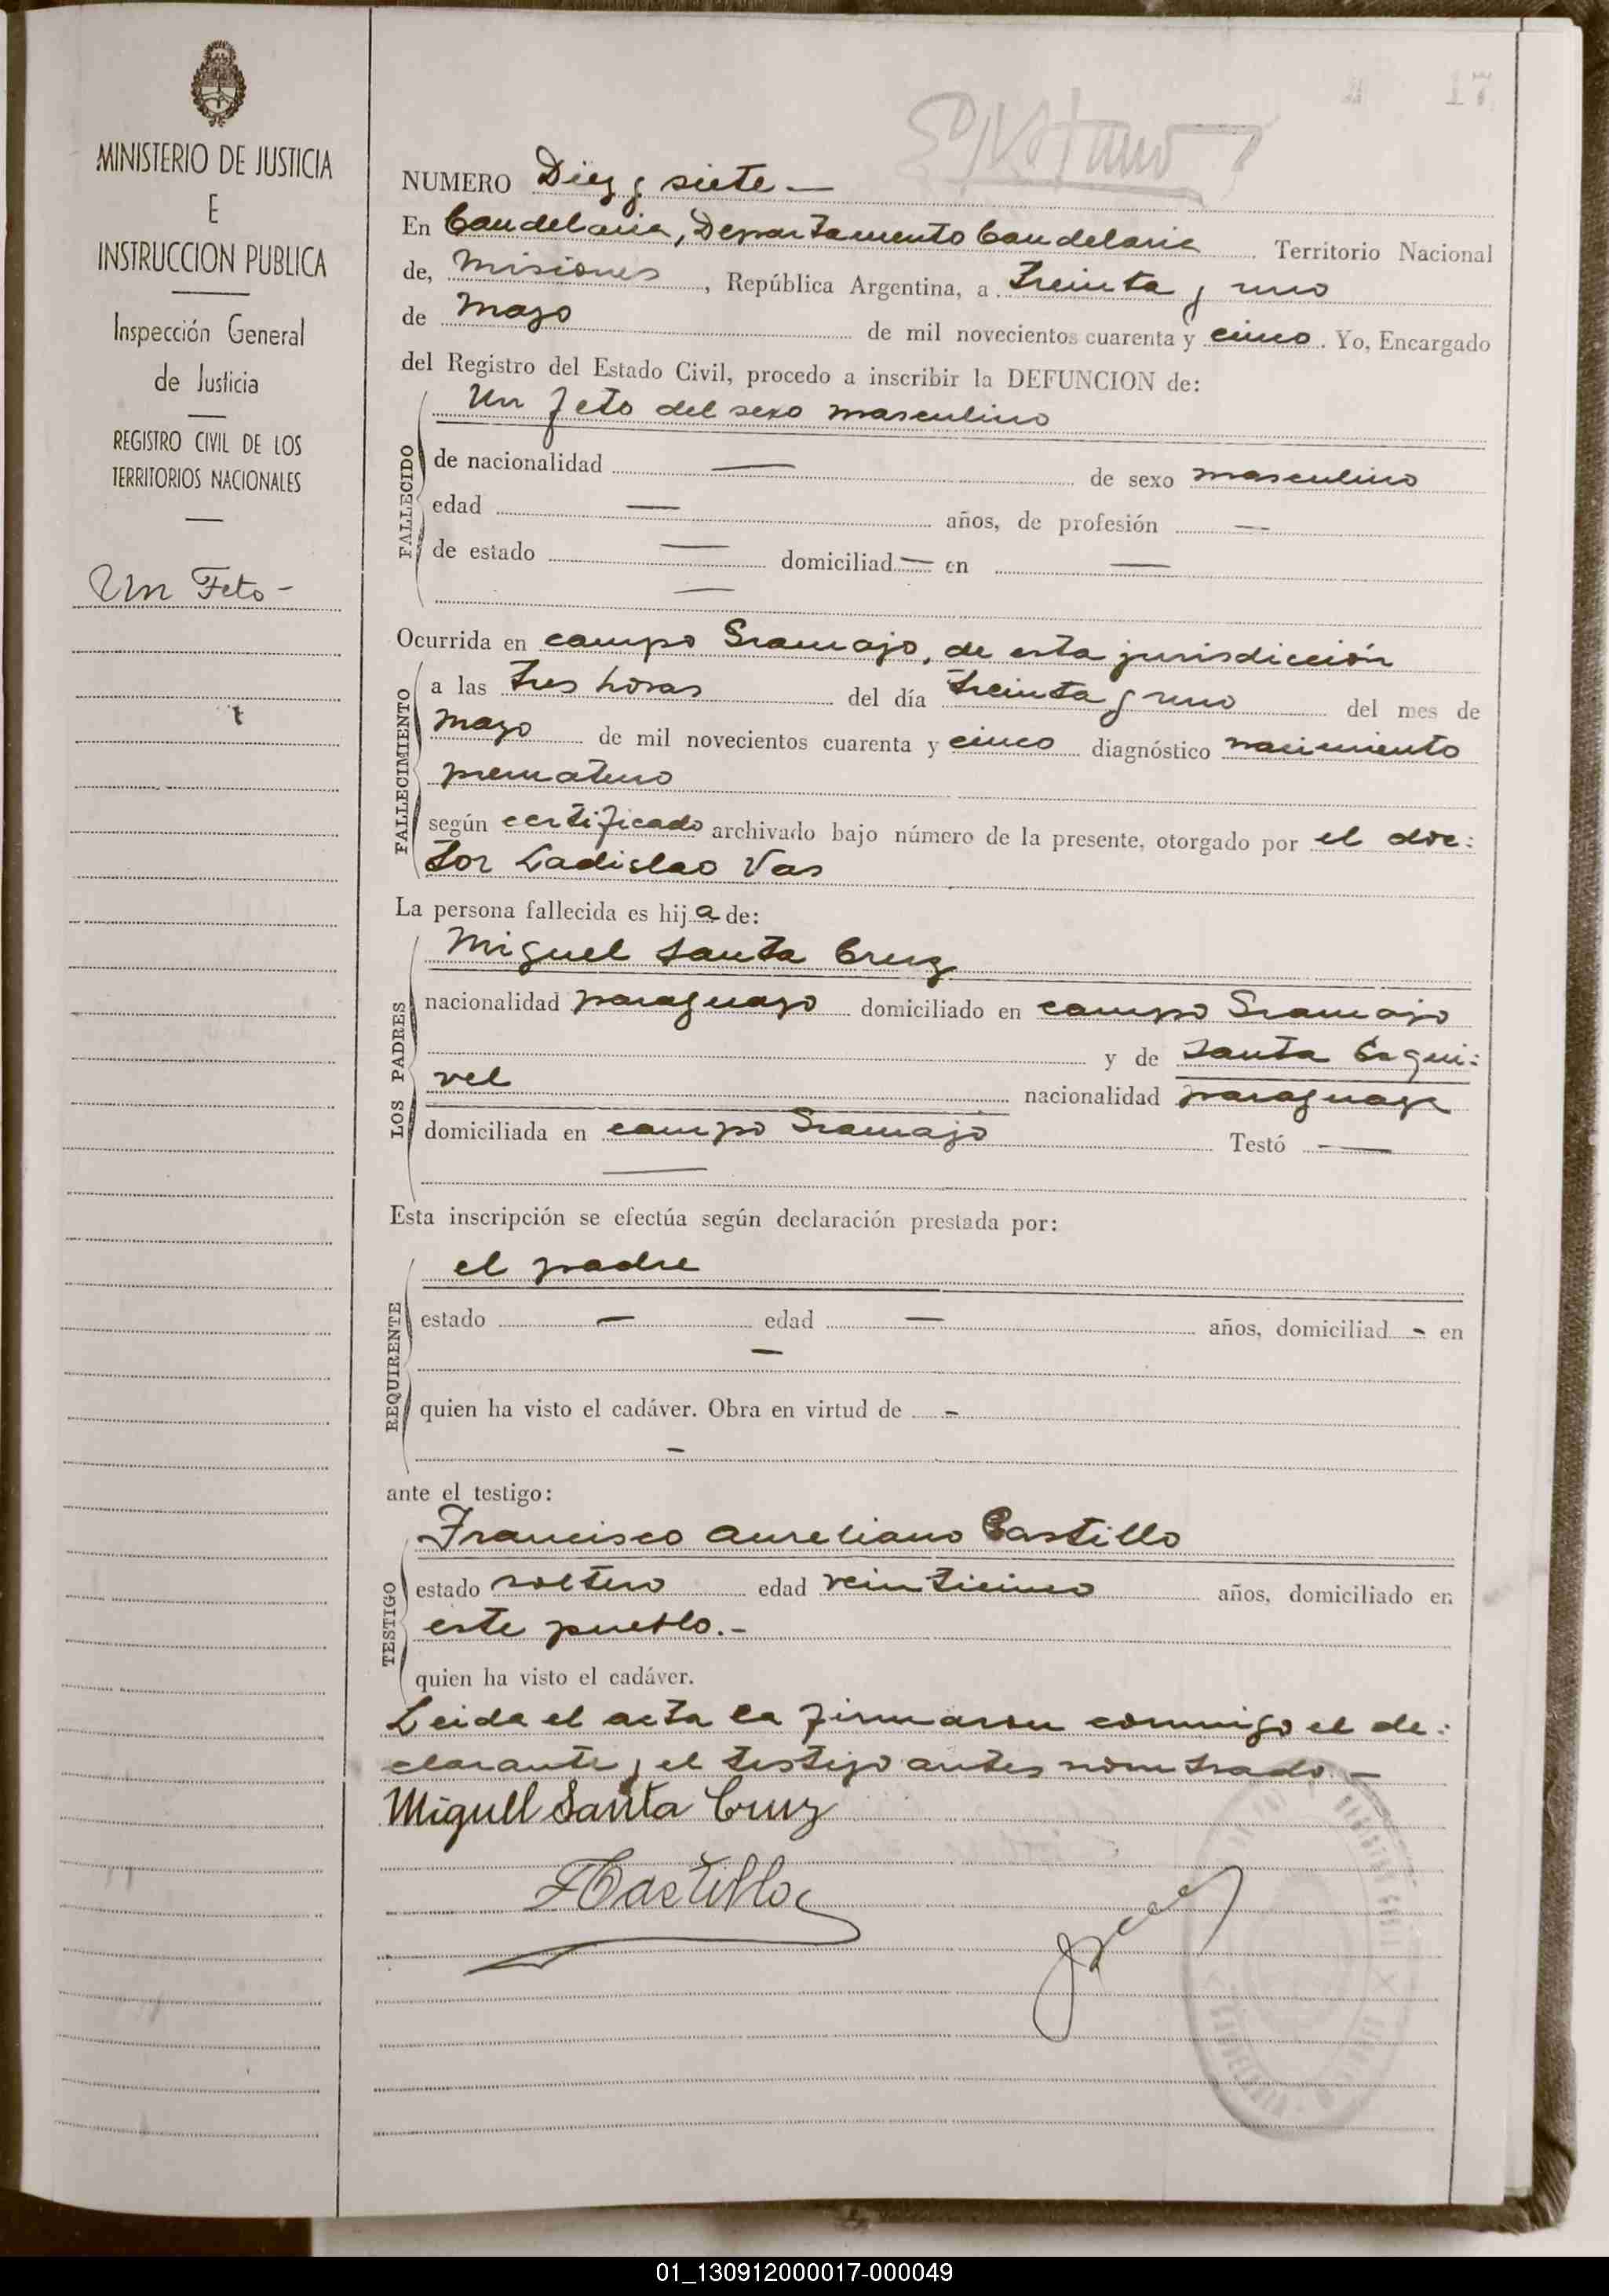 17
MINISTERIO DE JUSTICIA
E
INSTRUCCION PUBLICA
Inspección General
de Justicia
REGISTRO CIVIL DE LOS
TERRITORIOS NACIONALES
Un Feto -
NUMERO Diez y siete -
En Candelaria, Departamento Candelaria Territorio Nacional
de, Misiones, República Argentina, a treinta y uno
de Mayo de mil novecientos cuarenta y cinco. Yo, Encargado
del Registro del Estado Civil, procedo a inscribir la DEFUNCION de:
Un feto del sexo masculino
FALLECIDO
de nacionalidad — de sexo masculino
edad — años, de profesión —
de estado — domiciliad — en —
—
Ocurrida en campo Gramajo, de esta jurisdicción
FALLECIMIENTO
a las tres horas del día treinta y uno del mes de
Mayo de mil novecientos cuarenta y cinco diagnóstico nacimiento
prematuro
según certificado archivado bajo número de la presente, otorgado por el doc:
tor Ladislao Vas
La persona fallecida es hija de:
LOS PADRES
Miguel Santa Cruz
nacionalidad paraguayo domiciliado en campo Gramajo
y de Santa Esqui:
vel nacionalidad paraguaya
domiciliada en campo Gramajo Testó —
—
Esta inscripción se efectúa según declaración prestada por:
REQUIRENTE
el padre
estado — edad — años, domiciliad - en
—
quien ha visto el cadáver. Obra en virtud de -
-
ante el testigo:
TESTIGO
Francisco Aureliano Castillo
estado soltero edad veinticinco años, domiciliado en
este pueblo.-
quien ha visto el cadáver.
Leida el acta la firmaron conmigo el de:
clarante y el testigo antes nombrado. -
Miguel Santa Cruz
FCastillo
01_130912000017-000049